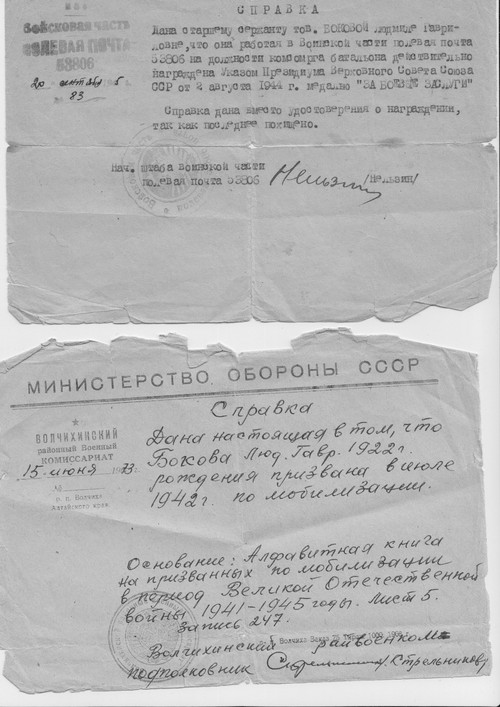 СПРАВКА
Войсковая часть
ПОЛЕВАЯ ПОЧТА
53806
20 сентября 5
83
Дана старшему сержанту тов. БОКОВОЙ Людмиле Гаври-
ловне,что она работая в Воинской части полевая почта
53806 на должности комсорга батальона действительно
награждена Указом Президиума Верховного Совета Союза
ССР от 2 августа 1944 г. медалью "ЗА БОЕВЫЕ ЗАСЛУГИ"
Справка дана вместо удостоверения о награждении,
так как последнее похищено.
Нач. штаба воинской части
полевая почта 53806 /Нельзин/
МИНИСТЕРСТВО ОБОРОНЫ СССР
ВОЛЧИХИНСКИЙ
районный Военный
КОМИССАРИАТ
15 июня 1973.
р. п. Волчиха
Алтайского края
Справка
Дана настоящая в том, что
Бокова Люд. Гавр. 1922г.
рождения призвана в июле
1942г. по мобилизации.
Основание: Алфавитная книга
на призванных по мобилизации
в период Великой Отечественной
войны 1941-1945 годы. Лист 5.
Запись 247.
Волчихинский райвоенком
подполковник /Стрельников/